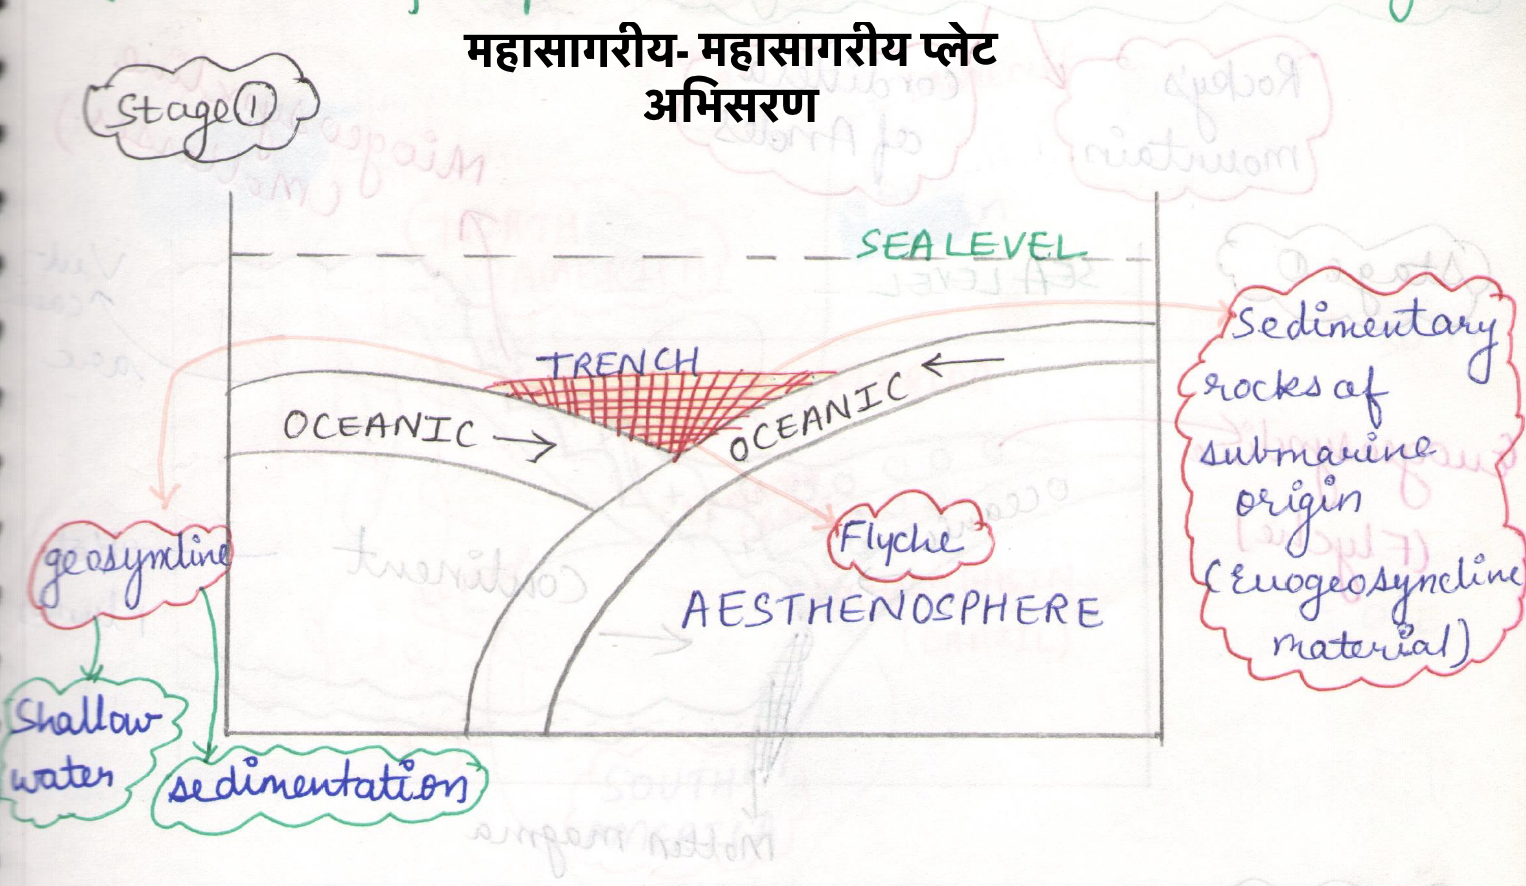 महासागरीय- महासागरीय प्लेट
अभिसरण
Stage ①
SEA LEVEL
TRENCH
OCEANIC →
OCEANIC
←
Sedimentary
rocks of
submarine
origin
(Euogeosyncline
material)
geosyncline
Flyche
AESTHENOSPHERE
Shallow
water
sedimentation